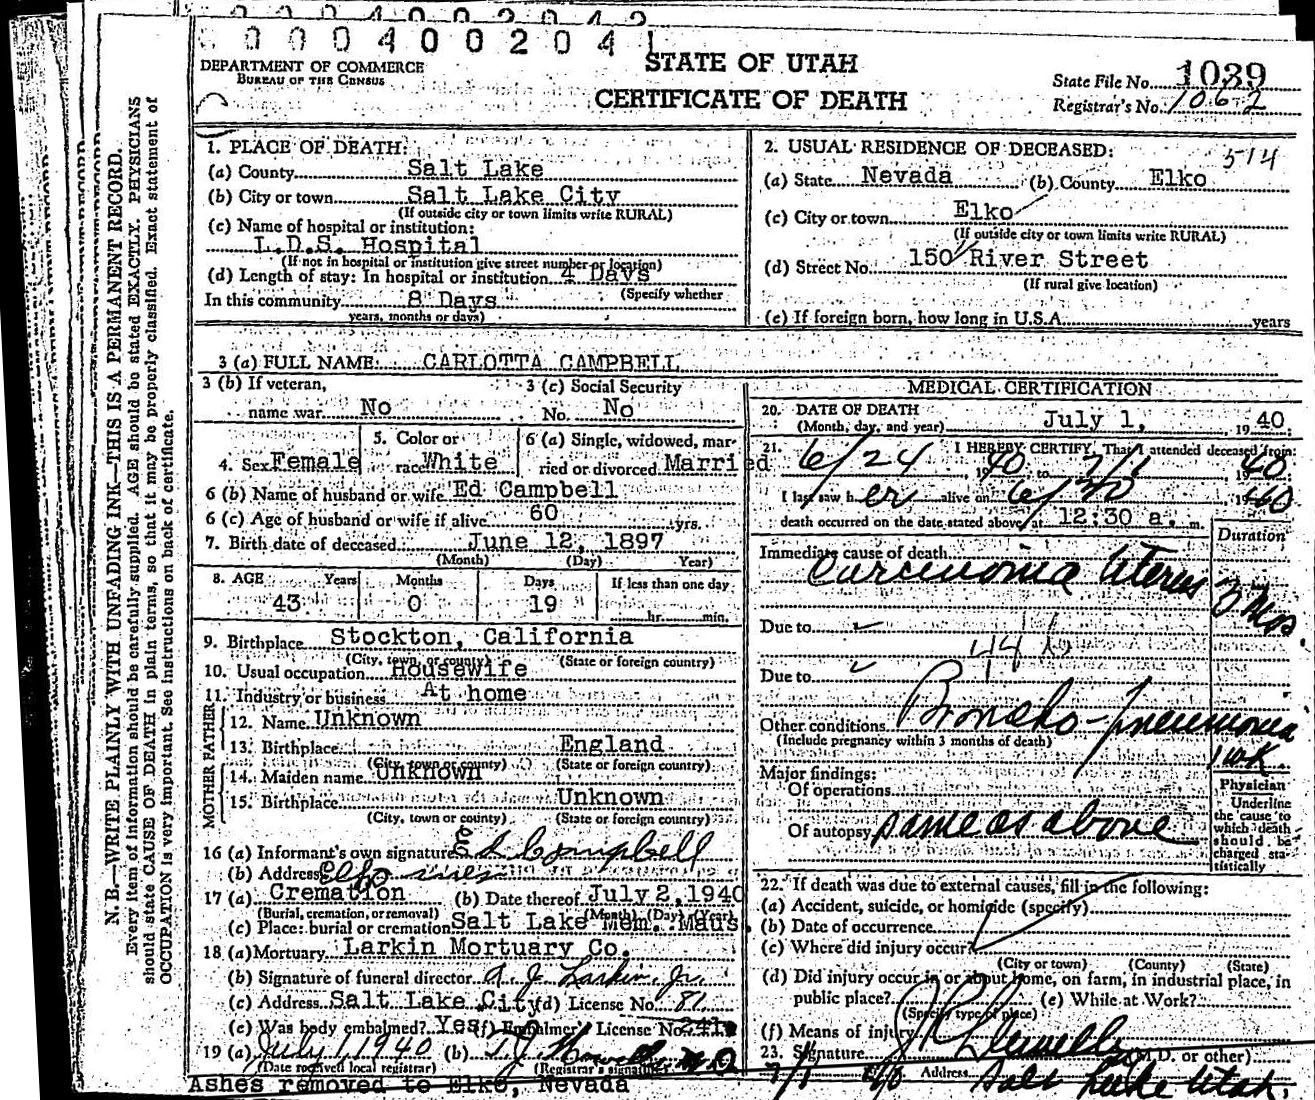 0 0 0 4 0 0 2 0 4
STATE OF UTAH
CERTIFICATE OF DEATH
DEPARTMENT OF COMMERCE
BUREAU OF THE CENSUS
State File No. 1039
Registrar's No. 1062
1. PLACE OF DEATH:
(a) County Salt Lake
(b) City or town Salt Lake City
(If outside city or town limits write RURAL)
(c) Name of hospital or institution:
L.D.S. Hospital
(If not in hospital or institution give street number or location)
(d) Length of stay: In hospital or institution 4 Days
(Specify whether
In this community 8 Days
years, months or days)
2. USUAL RESIDENCE OF DECEASED:
514
(a) State Nevada (b) County Elko
(c) City or town Elko
(If outside city or town limits write RURAL)
(d) Street No. 150 River Street
(If rural give location)
(e) If foreign born, how long in U.S.A. years
3 (a) FULL NAME: CARLOTTA CAMPBELL
3 (b) If veteran,
name war No
3 (c) Social Security
No. No
4. Sex Female
5. Color or
race White
6 (a) Single, widowed, mar-
ried or divorced Married
6 (b) Name of husband or wife Ed Campbell
6 (c) Age of husband or wife if alive 60 yrs.
7. Birth date of deceased June 12, 1897
(Month) (Day) Year)
8. AGE Years Months Days If less than one day
43 0 19 hr. min.
9. Birthplace Stockton, California
(City, town, or county) (State or foreign country)
10. Usual occupation Housewife
11. Industry or business At home
FATHER
12. Name Unknown
13. Birthplace England
(City, town or county) (State or foreign country)
MOTHER
14. Maiden name Unknown
15. Birthplace Unknown
(City, town or county) (State or foreign country)
16 (a) Informant's own signature Ed Campbell
(b) Address Elko
17 (a) Cremation (b) Date thereof July 2, 1940
(Burial, cremation, or removal) (Month) (Day) (Year)
(c) Place: burial or cremation Salt Lake Mem. Maus.
18 (a) Mortuary Larkin Mortuary Co.
(b) Signature of funeral director A. J. Larkin Jr.
(c) Address Salt Lake City (d) License No. 81
(e) Was body embalmed? Yes (f) Embalmer License No.
19 (a) July 1, 1940 (b) T. J. Howells M D
(Date received local registrar) (Registrar's signature)
Ashes removed to Elko, Nevada
MEDICAL CERTIFICATION
20. DATE OF DEATH
(Month, day, and year) July 1, 1940
21. I HEREBY CERTIFY, That I attended deceased from:
6/24 1940 to 7/1 1940
I last saw her alive on 6/30 1940
death occurred on the date stated above at 12:30 a. m.
Duration
Immediate cause of death
Carcinoma Uterus 3 Mos.
Due to
Due to
Other conditions Broncho-pneumonia
(Include pregnancy within 3 months of death)
1 wk
Major findings:
Of operations
Of autopsy same as above
Physician
Underline
the cause to
which death
should be
charged sta-
tistically
22. If death was due to external causes, fill in the following:
(a) Accident, suicide, or homicide (specify)
(b) Date of occurrence
(c) Where did injury occur?
(City or town) (County) (State)
(d) Did injury occur in or about home, on farm, in industrial place, in
public place? (e) While at Work?
(Specify type of place)
(f) Means of injury
23. Signature (M.D. or other)
7/1 Address Salt Lake Utah.
N. B.—WRITE PLAINLY WITH UNFADING INK—THIS IS A PERMANENT RECORD.
Every item of information should be carefully supplied. AGE should be stated EXACTLY. PHYSICIANS
should state CAUSE OF DEATH in plain terms, so that it may be properly classified. Exact statement of
OCCUPATION is very important. See instructions on back of certificate.